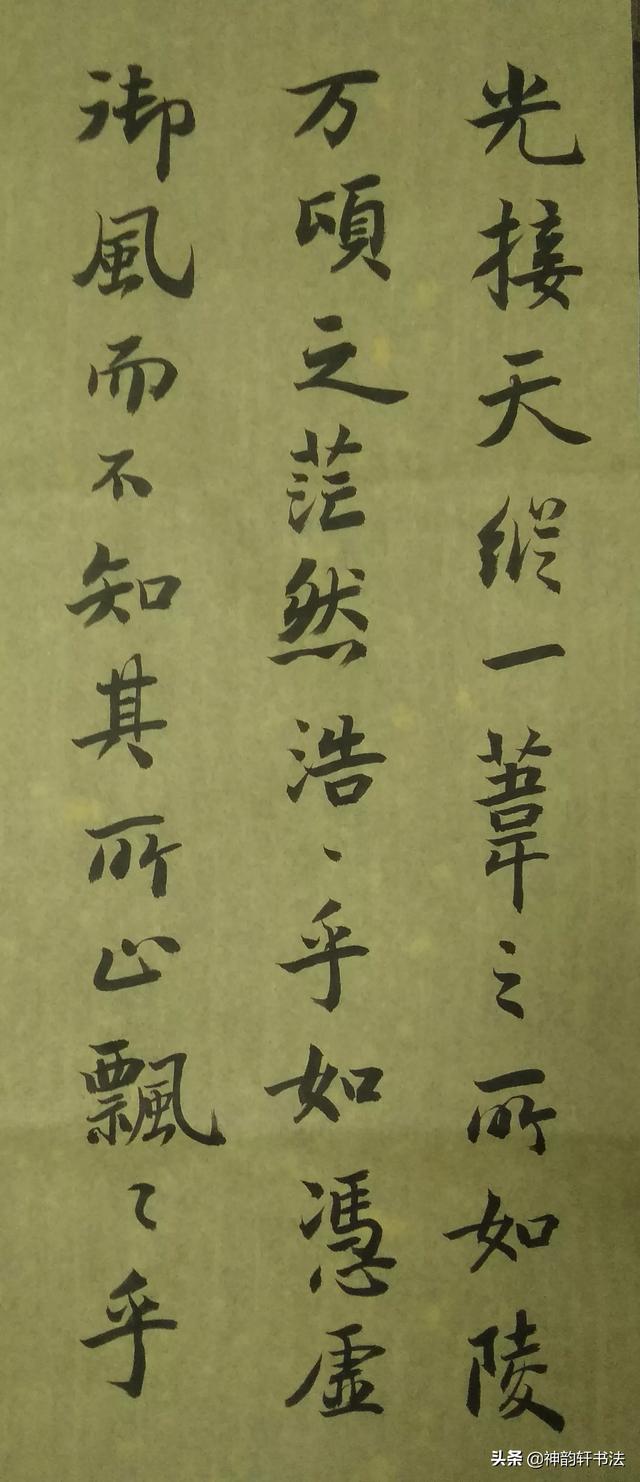 光接天縱一葦之所如陵
万頃之茫然浩丶乎如憑虛
御風而不知其所止飄〻乎
头条 @神韵轩书法